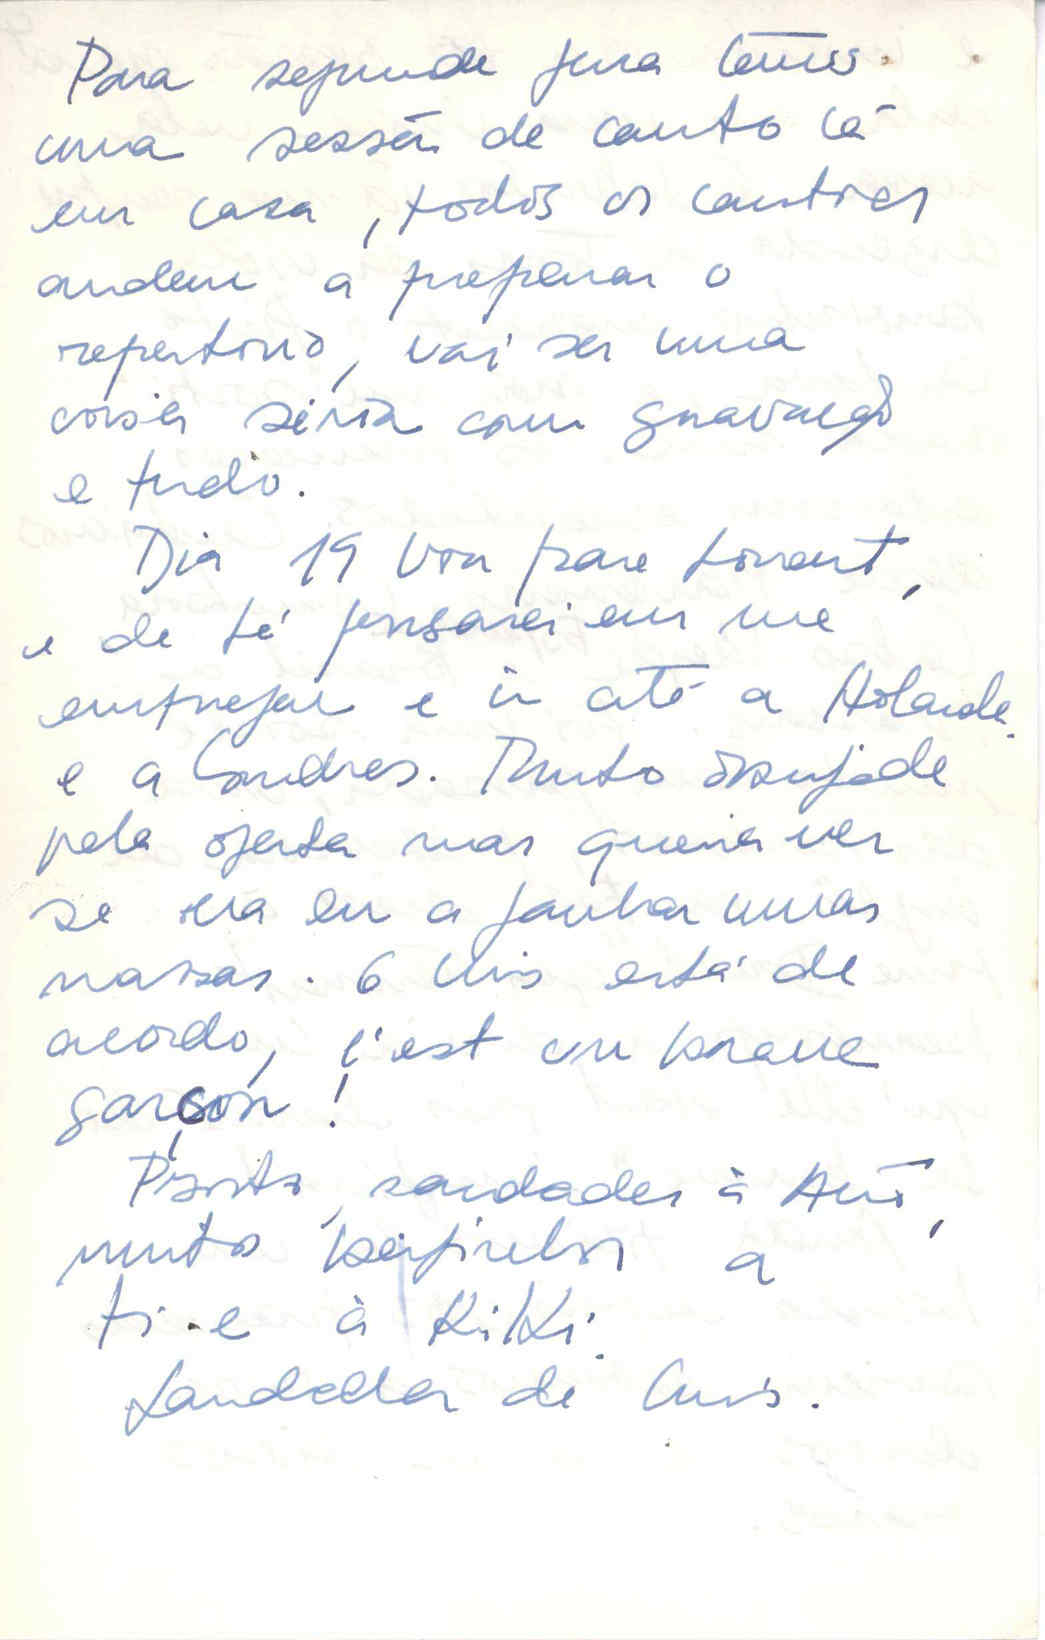 Para segunda feira temos
uma sessão de canto cá
em casa, todos os cantores
andam a preparar o
repertorio, vai ser uma
coisa séria com gravação
e tudo.
Dia 19 vou para
e de lá pensarei em me
empregar e ir até a Holanda
e a Londres. Muito obrigada
pela oferta mas queria ver
se era eu a ganhar umas
massas. O Luis está de
acordo, c'est un brave
garçon!
Pronto, saudades à
muitos beijinhos a
ti e à KiKi.
Saudades do Luis.